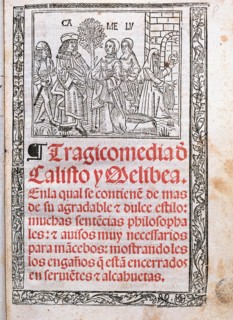 CA ME LU
¶ Tragicomedia ð
Calisto y Melibea.
Enla qual se contienẽ de mas
de su agradable ⁊ dulce estilo:
muchas sentẽcias philosopha
les: ⁊ auisos muy necessarios
para mãcebos: mostrando les
los engaños q̃ estã encerrados
en seruiẽtes ⁊ alcahuetas.